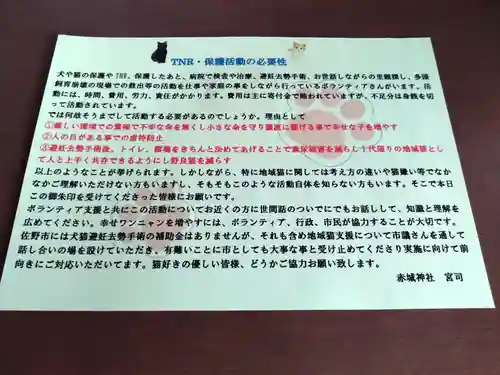 TNR・保護活動の必要性
犬や猫の保護やTNR、保護したあと、病院で検査や治療、避妊去勢手術、お世話しながらの里親探し、多頭
飼育崩壊の現場での救出等の活動を仕事や家庭の事をしながら行っているボランティアさんがいます。活
動には、時間、費用、労力、責任がかかります。費用は主に寄付金で賄われていますが、不足分は身銭を切
って活動されています。
では何故そうまでして活動する必要があるのでしょうか。理由として
①厳しい環境での繁殖で不幸な命を無くし小さな命を守り譲渡に繋げる事で幸せな子を増やす
②人の目がある事での虐待防止
③避妊去勢手術後、トイレ、餌場をきちんと決めてあげることで糞尿被害を減らし一代限りの地域猫とし
て人と上手く共存できるようにし野良猫を減らす
以上のようなことが挙げられます。しかしながら、特に地域猫に関しては考え方の違いや猫嫌い等でなか
なかご理解いただけない方もいますし、そもそもこのような活動自体を知らない方もいます。そこで本日
この御朱印を受けてくださった皆様にお願いです。
ボランティア支援と共にこの活動についてお近くの方に世間話のついでにでもお話しして、知識と理解を
広めてください。幸せワンニャンを増やすには、ボランティア、行政、市民が協力することが大切です。
佐野市には犬猫避妊去勢手術の補助金はありませんが、それも含め地域猫支援について市議さんを通して
話し合いの場を設けていただき、有難いことに市としても大事な事と受け止めてくださり実施に向けて前
向きにご対応いただいてます。猫好きの優しい皆様、どうかご協力お願い致します。
赤城神社 宮司